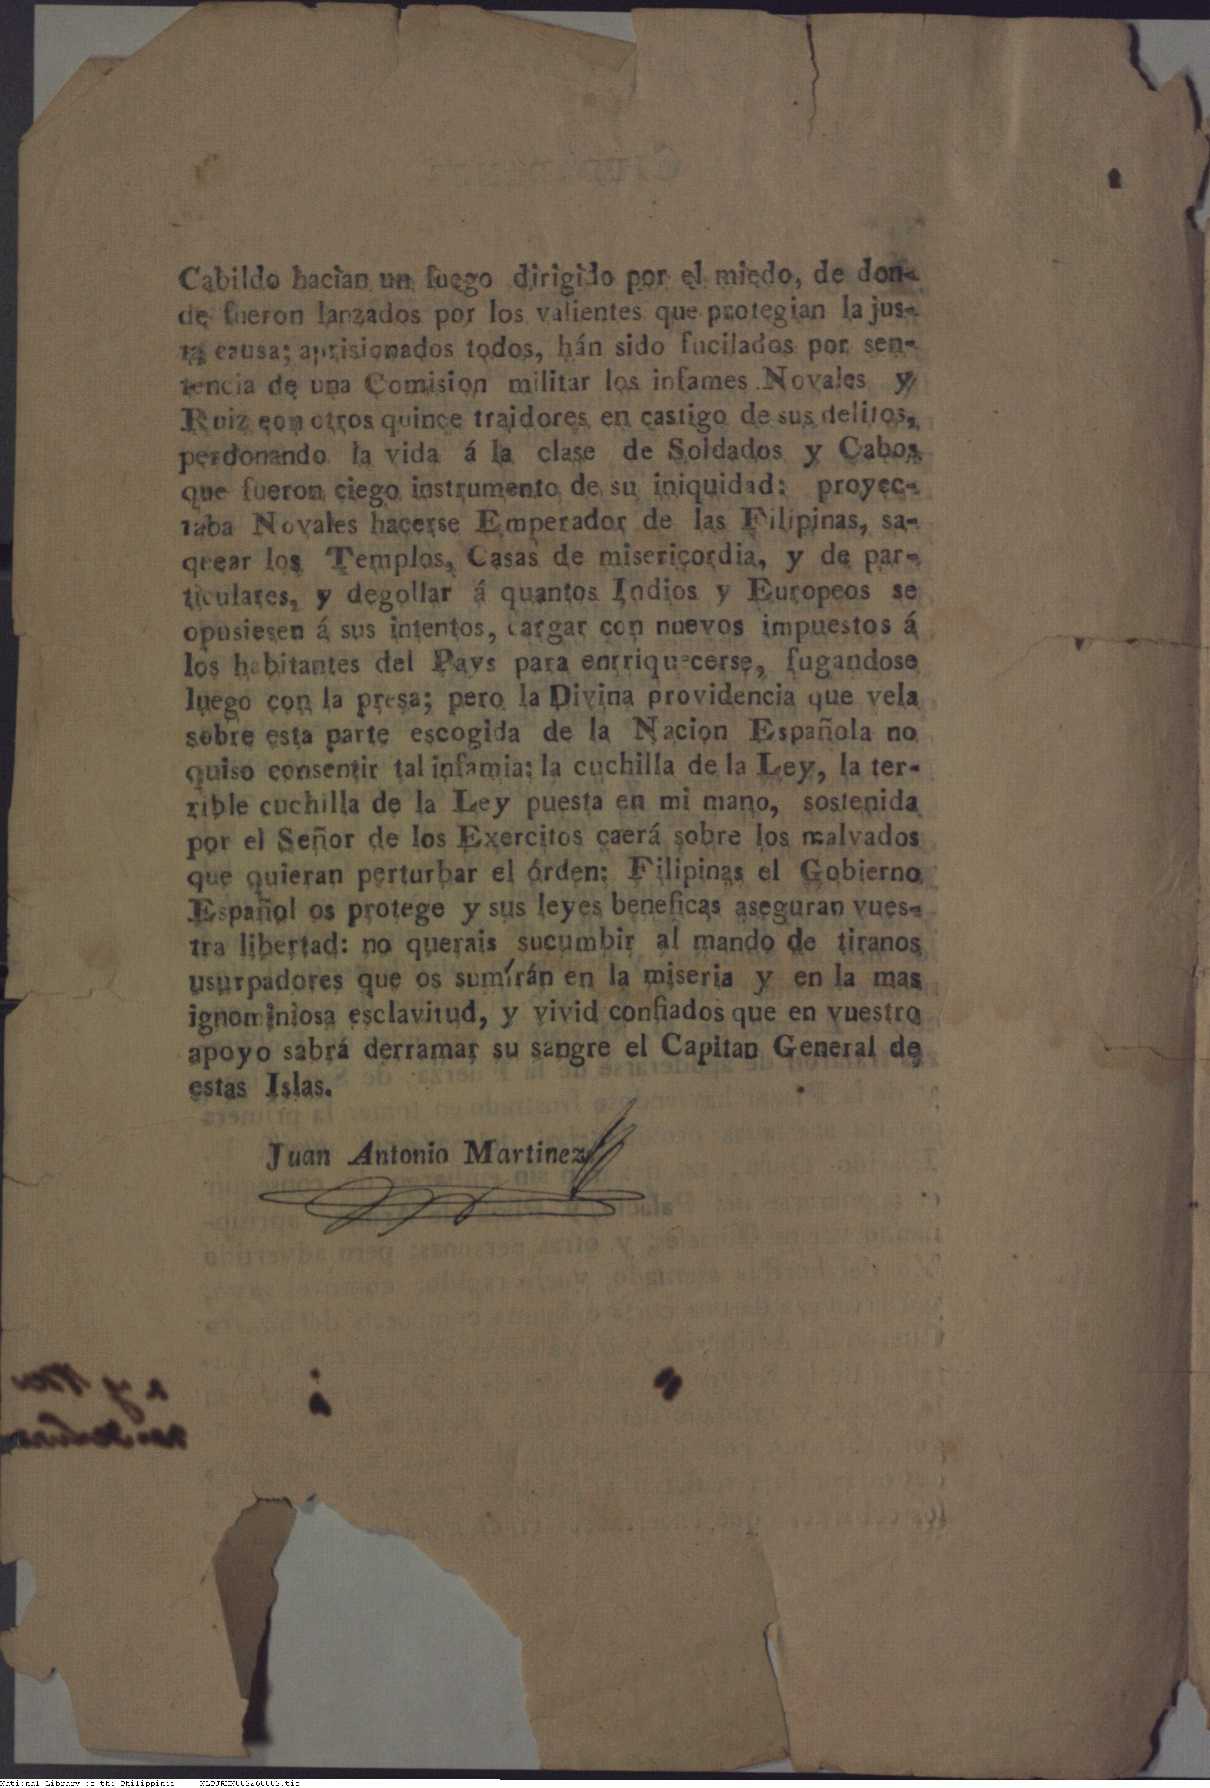 Cabildo hacian un fuego dirigido por el miedo, de don-
de fueron lanzados por los valientes que protegian la jus-
ta causa; aprisionados todos, hán sido fucilados por sen-
tencia de una Comision militar los infames Novales y
Ruiz con otros quince traidores en castigo de sus delitos,
perdonando la vida á la clase de Soldados y Cabos
que fueron ciego instrumento de su iniquidad: proyec-
taba Novales hacerse Emperador de las Filipinas, sa-
quear los Templos, Casas de misericordia, y de par-
ticulares, y degollar á quantos Indios y Europeos se
opusiesen á sus intentos, cargar con nuevos impuestos á
los habitantes del Pays para enrriquecerse, fugandose
luego con la presa; pero la Divina providencia que vela
sobre esta parte escogida de la Nacion Española no
quiso consentir tal infamia: la cuchilla de la Ley, la ter-
rible cuchilla de la Ley puesta en mi mano, sostenida
por el Señor de los Exercitos caerá sobre los malvados
que quieran perturbar el órden: Filipinas el Gobierno
Español os protege y sus leyes beneficas aseguran vues-
tra libertad: no querais sucumbir al mando de tiranos
usurpadores que os sumirán en la miseria y en la mas
ignominiosa esclavitud, y vivid confiados que en vuestro
apoyo sabrá derramar su sangre el Capitan General de
estas Islas.
Juan Antonio Martinez
National Library of the Philippines